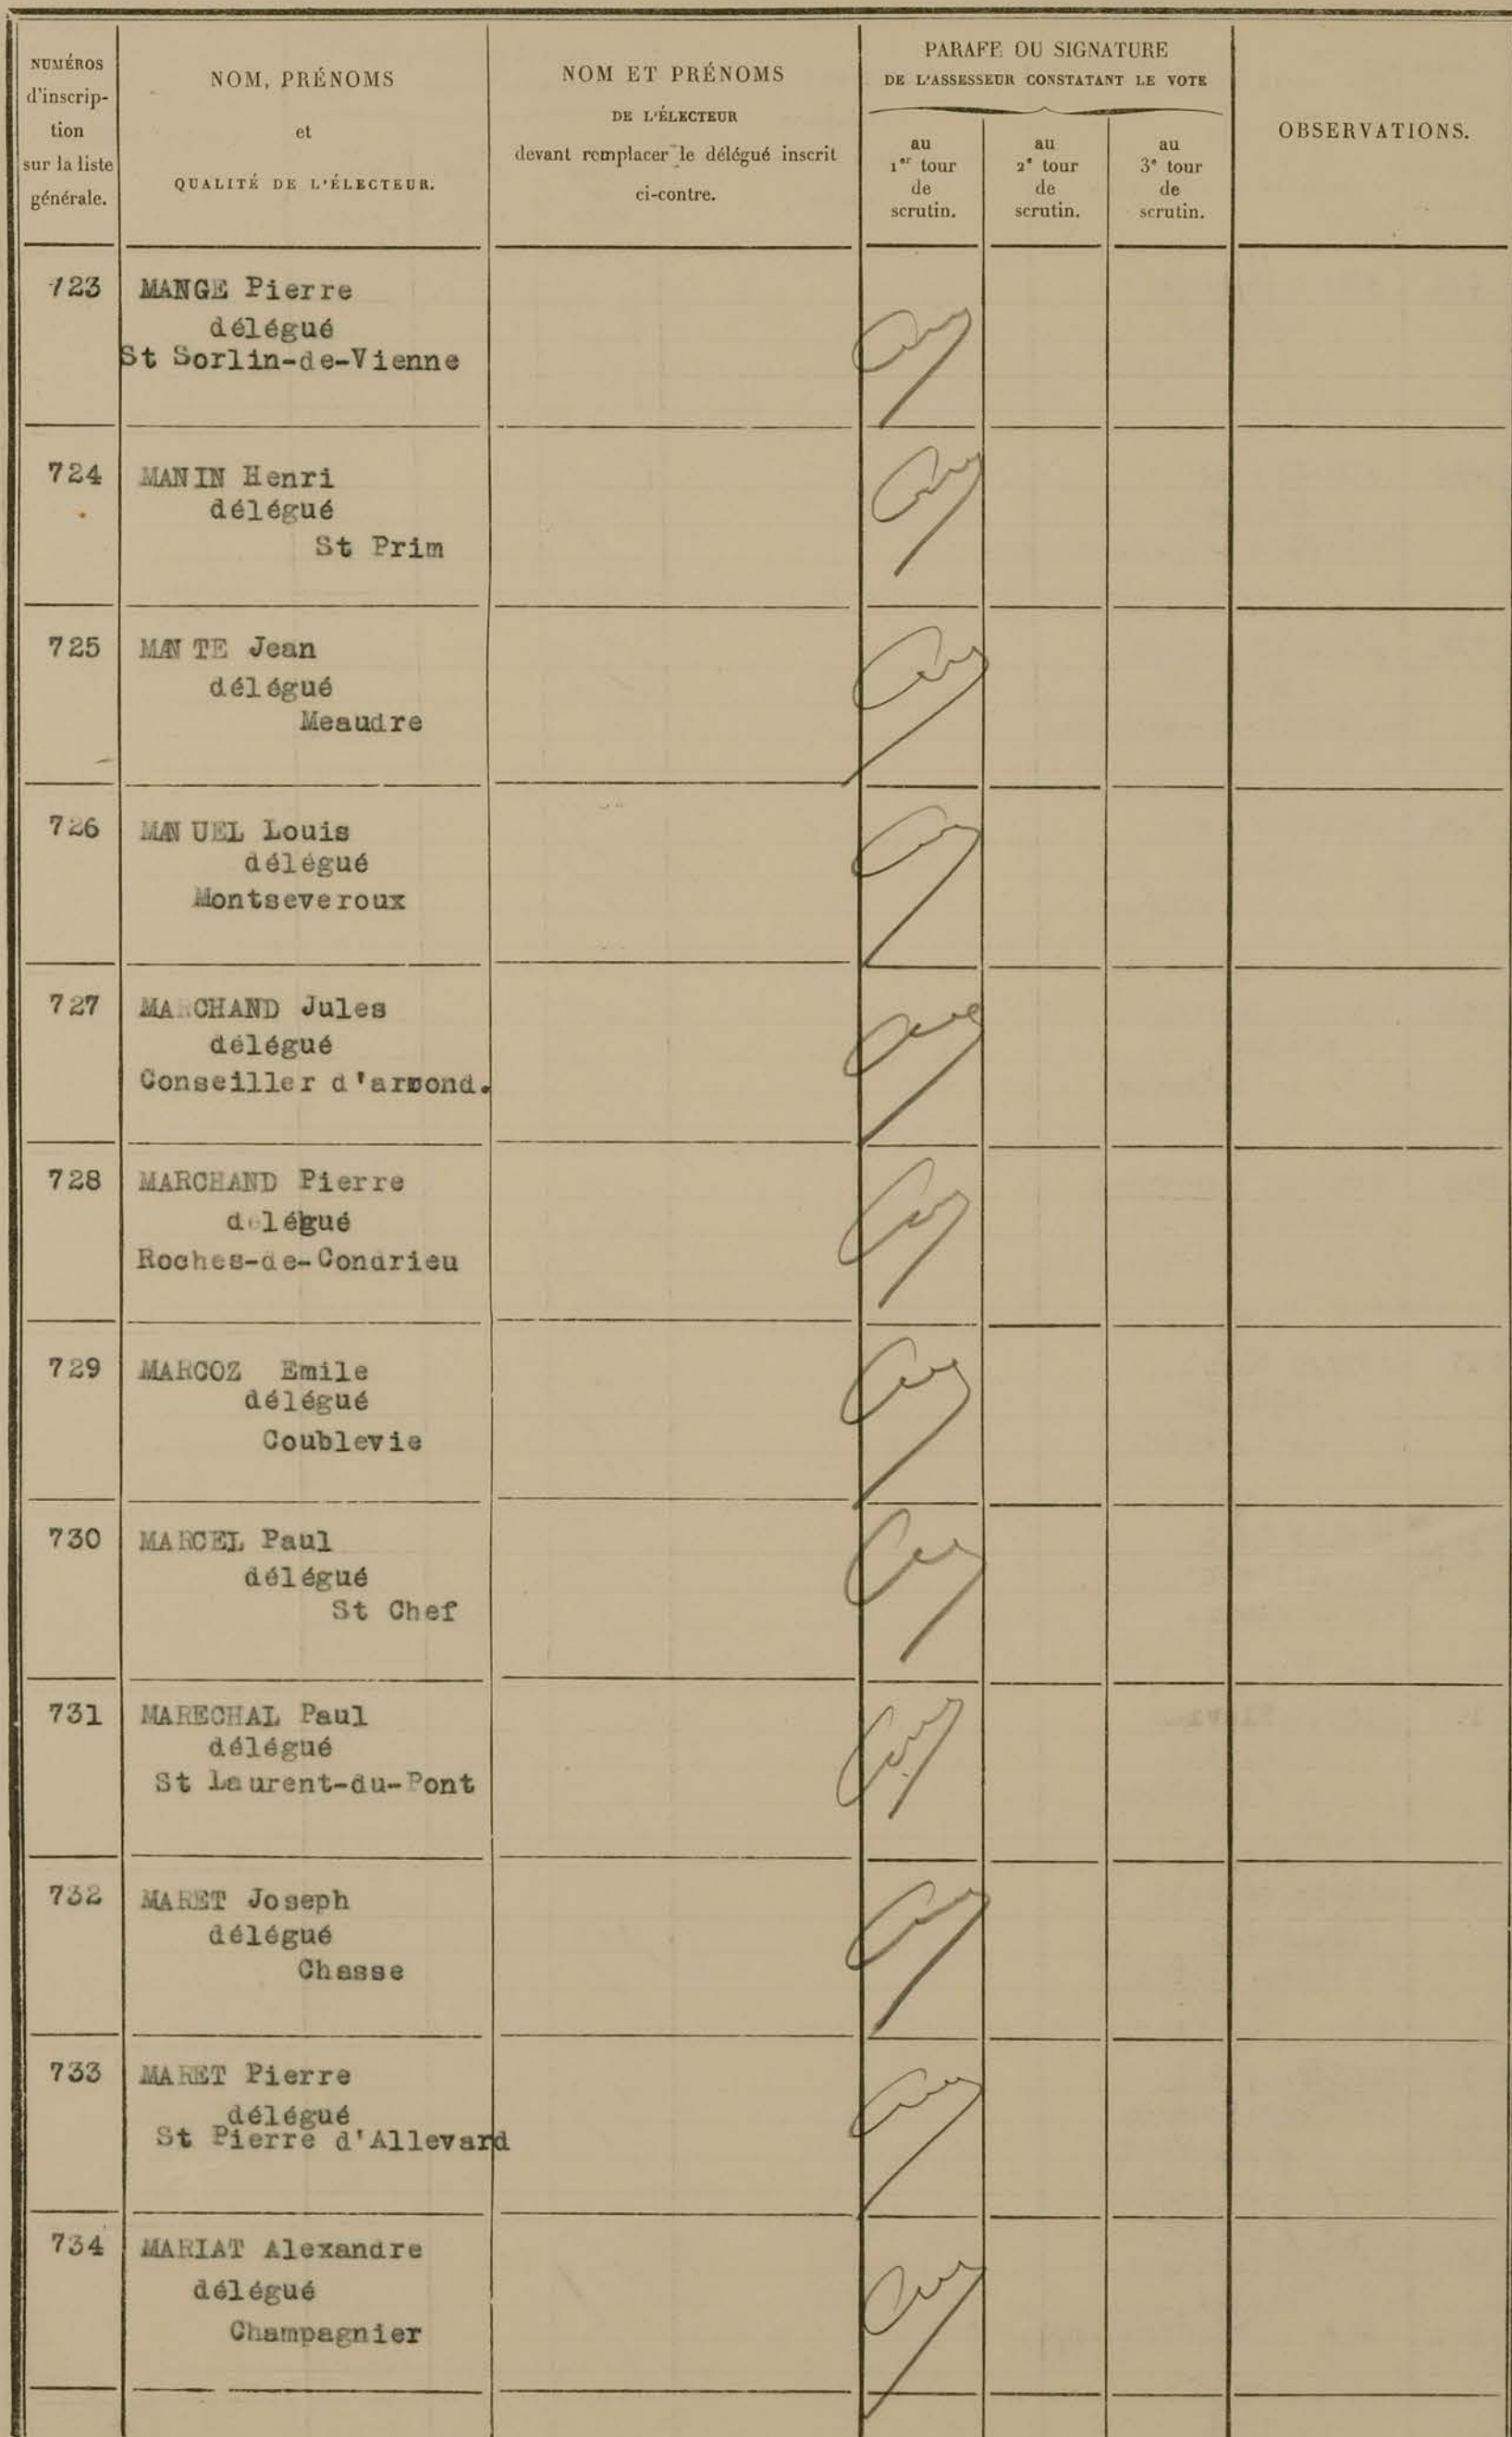 NUMÉROS
d'inscrip-
tion
sur la liste
générale.
NOM, PRÉNOMS
et
QUALITÉ DE L'ÉLECTEUR.
NOM ET PRÉNOMS
DE L'ÉLECTEUR
devant remplacer le délégué inscrit
ci-contre.
PARAFE OU SIGNATURE
DE L'ASSESSEUR CONSTATANT LE VOTE
au
1er tour
de
scrutin.
au
2e tour
de
scrutin.
au
3e tour
de
scrutin.
OBSERVATIONS.
723 MANGE Pierre
délégué
St Sorlin-de-Vienne
724 MANIN Henri
délégué
St Prim
725 MANTE Jean
délégué
Meaudre
726 MANUEL Louis
délégué
Montseveroux
727 MARCHAND Jules
délégué
Conseiller d'arrond.
728 MARCHAND Pierre
délégué
Roches-de-Condrieu
729 MARCOZ Emile
délégué
Coublevie
730 MARCEL Paul
délégué
St Chef
731 MARECHAL Paul
délégué
St Laurent-du-Pont
732 MARET Joseph
délégué
Chasse
733 MARET Pierre
délégué
St Pierre d'Allevard
734 MARIAT Alexandre
délégué
Champagnier